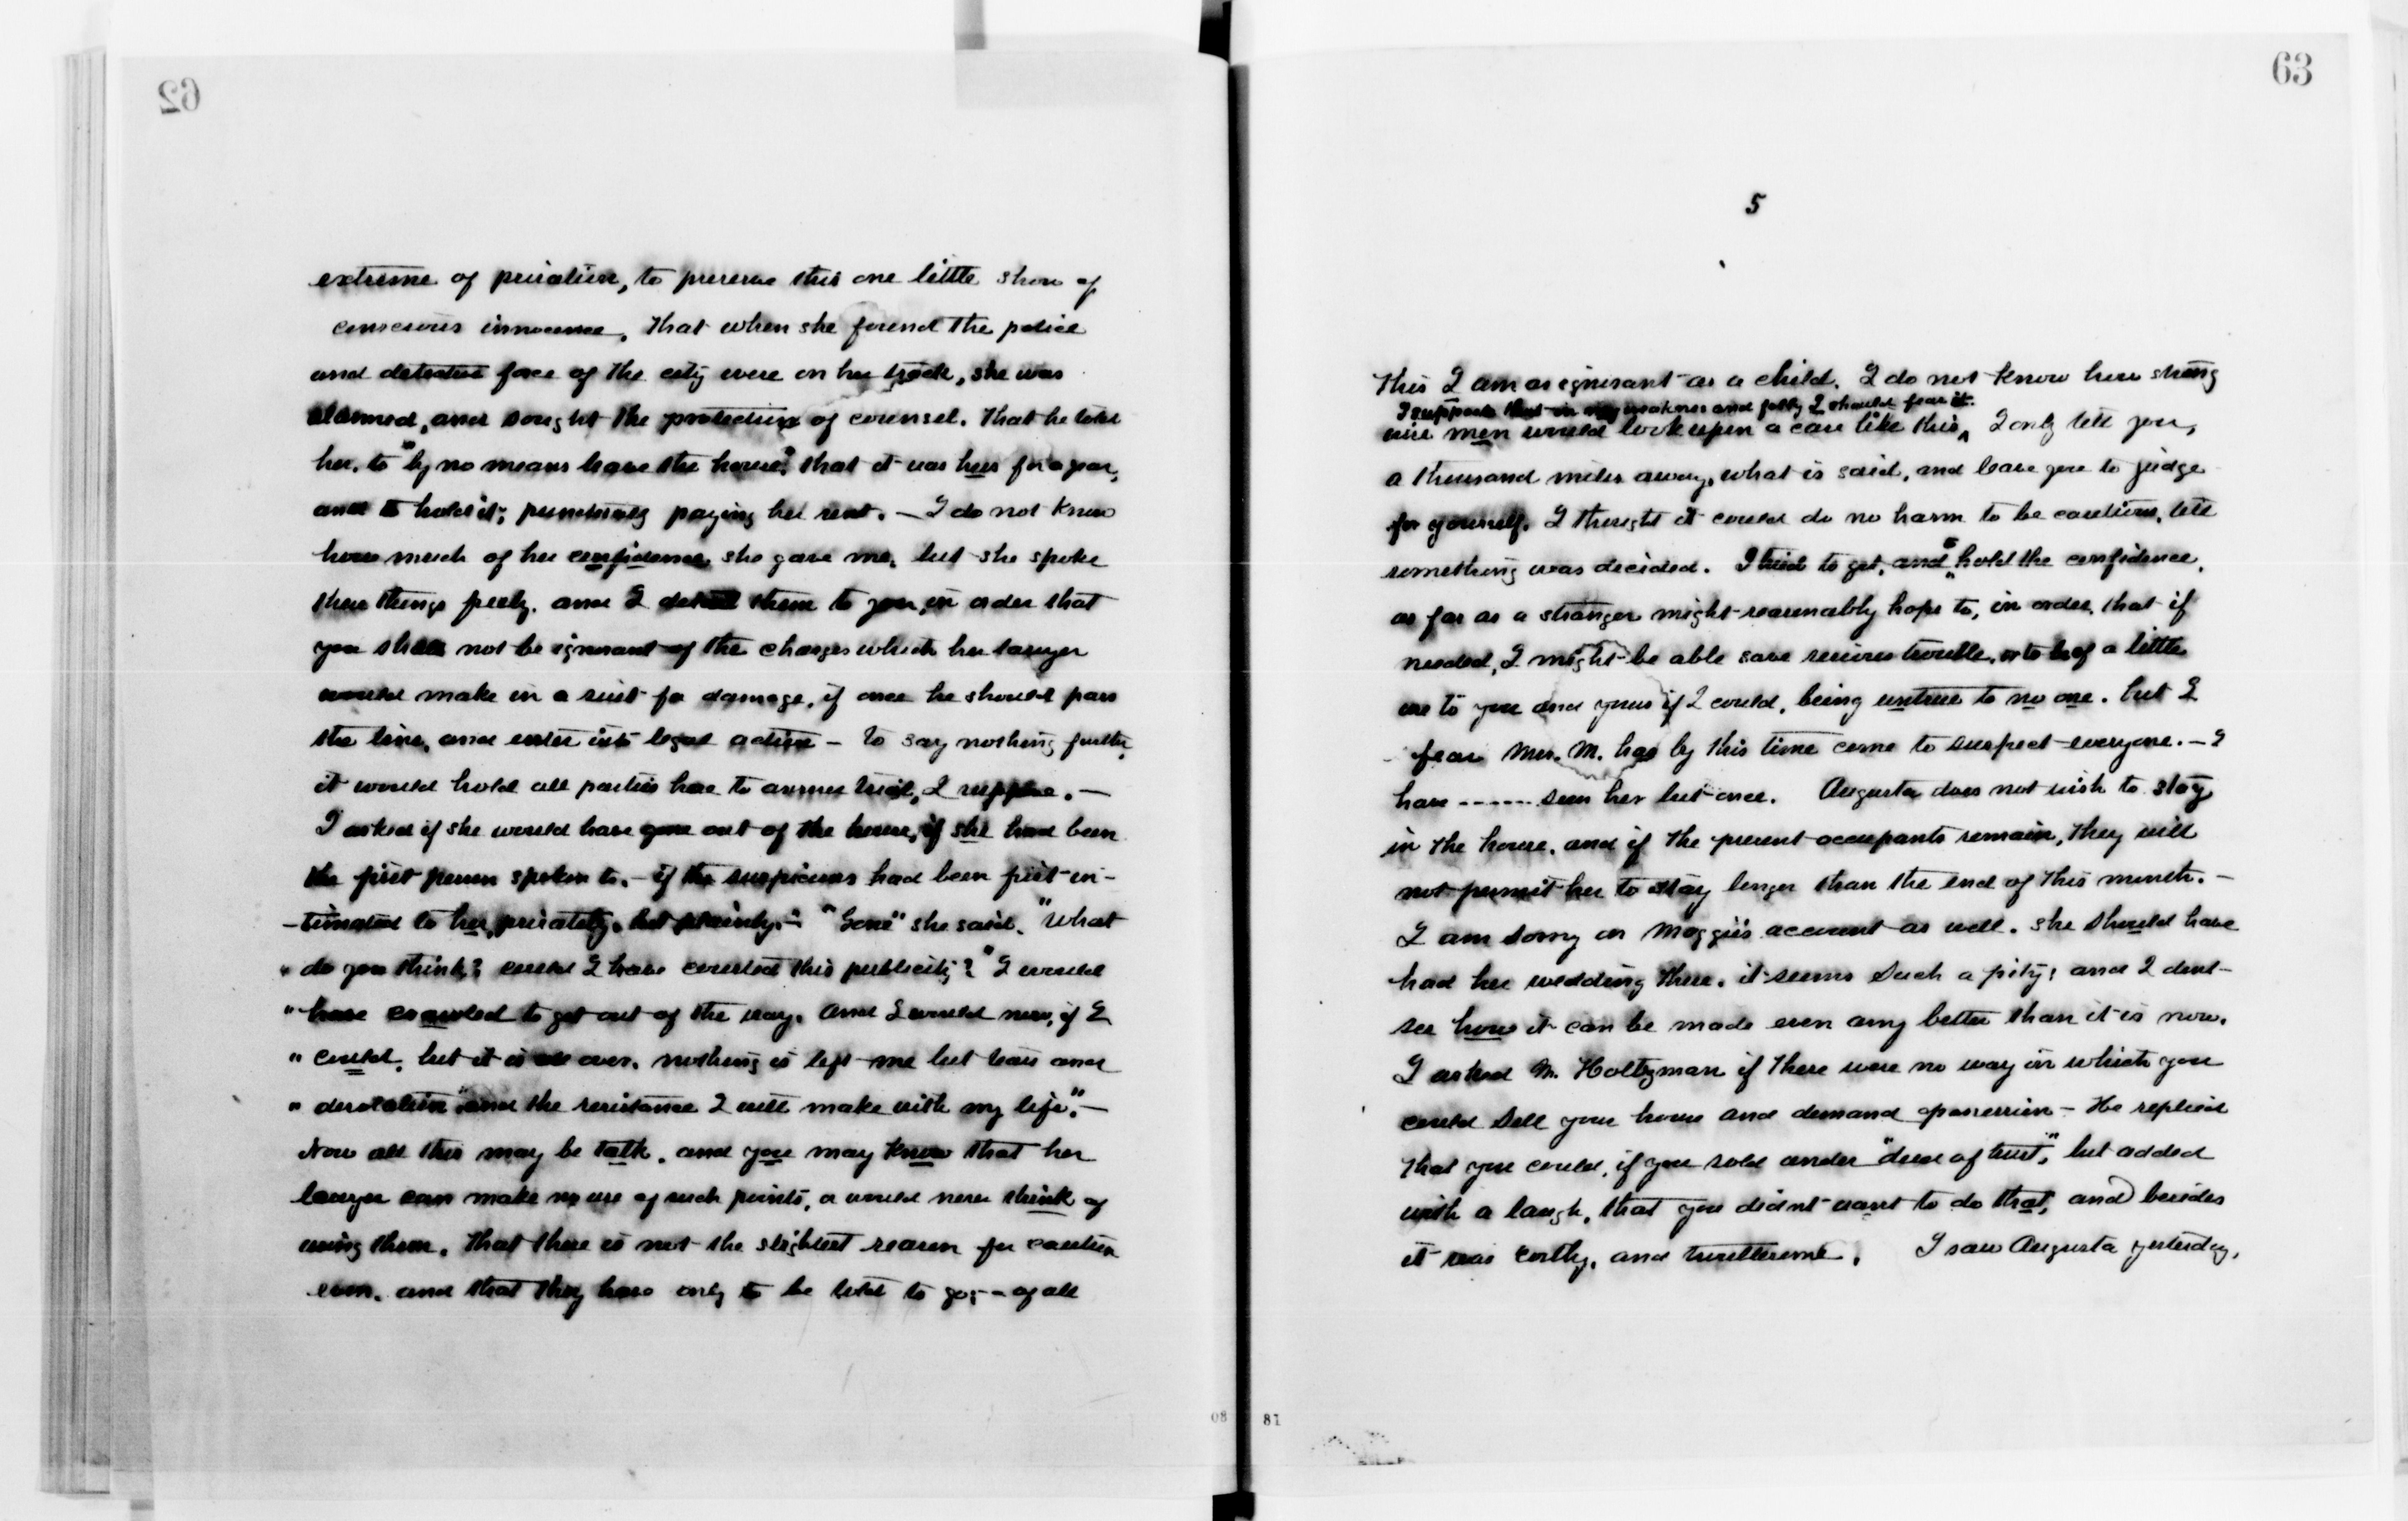 62
extreme of privation, to preserve this one little show of
conscious innocence. That when she found the police
and detective force of the city were on her track, she was
alarmed, and sought the protection of counsel. That he told
her, to "by no means leave the house", that it was hers for a year,
and to hold it; punctually paying her rent. — I do not know
how much of her confidence she gave me, but she spoke
these things freely. and I detail them to you, in order that
you shall not be ignorant of the charges which her lawyer
would make in a suit for damage, if once he should pass
the line, and enter into legal action — to say nothing further,
it would hold all parties here to answer trial, I suppose. —
I asked if she would have gone out of the house, if she had been
the first person spoken to. — if the suspicions had been first in-
-timated to her, privately, but plainly. — "Gone" she said, "What
" do you think? could I have courted this publicity?" I would
" have crawled to get out of the way. And I would now, if I
" could, but it is all over. nothing is left me but tears and
" desolation" and the resistance I will make with my life". —
Now all this may be talk, and you may know that her
lawyer can make no use of such points, or would never think of
using them. That there is not the slightest reason for caution
even, and that they have only to be told to go; — of all
80
63
5
This I am as ignorant as a child. I do not know how strong
I suppose that in my weakness and folly I should fear it.
wise men would look upon a case like this ^ I only tell you,
a thousand miles away, what is said, and leave you to judge
for yourself. I thought it could do no harm to be cautious, till
something was decided. I tried to get, and to hold the confidence,
as far as a stranger might reasonably hope to, in order, that if
needed, I might be able save serious trouble, or to be of a little
use to you and yours if I could, being untrue to no one. but I
fear Mrs. M. has by this time come to suspect everyone. — I
have ...... seen her but once. Augusta does not wish to stay
in the house, and if the present occupants remain, they will
not permit her to stay longer than the end of this month. —
I am sorry on Maggie's account as well. She should have
had her wedding there. it seems such a pity; and I dont
see how it can be made even any better than it is now.
I asked Mr. Holtzman if there were no way in which you
could sell your house and demand possession — He replied
that you could, if you sold under "deed of trust", but added
with a laugh, that you didnt want to do that, and besides
it was costly, and troublesome. I saw Augusta yesterday,
81